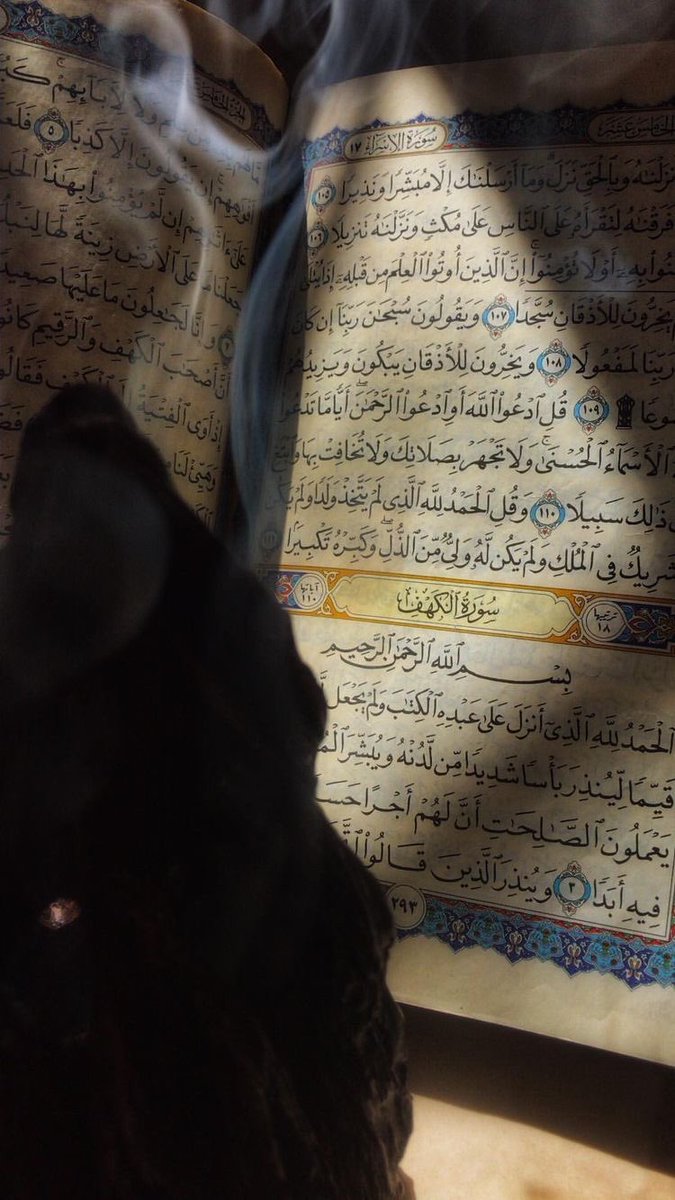 الخامس عشر
سُورَةُ الإِسۡرَاءِ ١٧
وَبِٱلۡحَقِّ نَزَلَۗ وَمَآ أَرۡسَلۡنَٰكَ إِلَّا مُبَشِّرٗا وَنَذِيرٗا ١٠٥
فَرَقۡنَٰهُ لِتَقۡرَأَهُۥ عَلَى ٱلنَّاسِ عَلَىٰ مُكۡثٖ وَنَزَّلۡنَٰهُ تَنزِيلٗا ١٠٦
بِهِۦٓ أَوۡ لَا تُؤۡمِنُوٓاْۚ إِنَّ ٱلَّذِينَ أُوتُواْ ٱلۡعِلۡمَ مِن قَبۡلِهِۦٓ إِذَا يُتۡلَىٰ
يَخِرُّونَ لِلۡأَذۡقَانِ سُجَّدٗا ١٠٧ وَيَقُولُونَ سُبۡحَٰنَ رَبِّنَآ إِن كَانَ
رَبِّنَا لَمَفۡعُولٗا ١٠٨ وَيَخِرُّونَ لِلۡأَذۡقَانِ يَبۡكُونَ وَيَزِيدُهُمۡ
١٠٩ قُلِ ٱدۡعُواْ ٱللَّهَ أَوِ ٱدۡعُواْ ٱلرَّحۡمَٰنَۖ أَيّٗا مَّا تَدۡعُواْ
ٱلۡأَسۡمَآءُ ٱلۡحُسۡنَىٰۚ وَلَا تَجۡهَرۡ بِصَلَاتِكَ وَلَا تُخَافِتۡ بِهَا وَٱبۡتَغِ
ذَٰلِكَ سَبِيلٗا ١١٠ وَقُلِ ٱلۡحَمۡدُ لِلَّهِ ٱلَّذِي لَمۡ يَتَّخِذۡ وَلَدٗا وَلَمۡ يَكُن
شَرِيكٞ فِي ٱلۡمُلۡكِ وَلَمۡ يَكُن لَّهُۥ وَلِيّٞ مِّنَ ٱلذُّلِّۖ وَكَبِّرۡهُ تَكۡبِيرَۢا ١١١
ترتيبها ١٨ سُورَةُ الكَهۡفِ آياتها ١١٠
بِسۡمِ ٱللَّهِ ٱلرَّحۡمَٰنِ ٱلرَّحِيمِ
ٱلۡحَمۡدُ لِلَّهِ ٱلَّذِيٓ أَنزَلَ عَلَىٰ عَبۡدِهِ ٱلۡكِتَٰبَ وَلَمۡ يَجۡعَل
قَيِّمٗا لِّيُنذِرَ بَأۡسٗا شَدِيدٗا مِّن لَّدُنۡهُ وَيُبَشِّرَ
يَعۡمَلُونَ ٱلصَّٰلِحَٰتِ أَنَّ لَهُمۡ أَجۡرًا
فِيهِ أَبَدٗا ٣ وَيُنذِرَ ٱلَّذِينَ قَالُواْ
٢٩٣
وَلَا لِأٓبَآئِهِمۡۚ
إِن يَقُولُونَ إِلَّا كَذِبٗا ٥
إِن لَّمۡ يُؤۡمِنُواْ بِهَٰذَا
جَعَلۡنَا مَا عَلَى ٱلۡأَرۡضِ زِينَةٗ لَّهَا
وَإِنَّا لَجَٰعِلُونَ مَا عَلَيۡهَا
أَنَّ أَصۡحَٰبَ ٱلۡكَهۡفِ وَٱلرَّقِيمِ كَانُواْ
إِذۡ أَوَى ٱلۡفِتۡيَةُ إِلَى ٱلۡكَهۡفِ فَقَالُواْ
وَهَيِّئۡ لَنَا